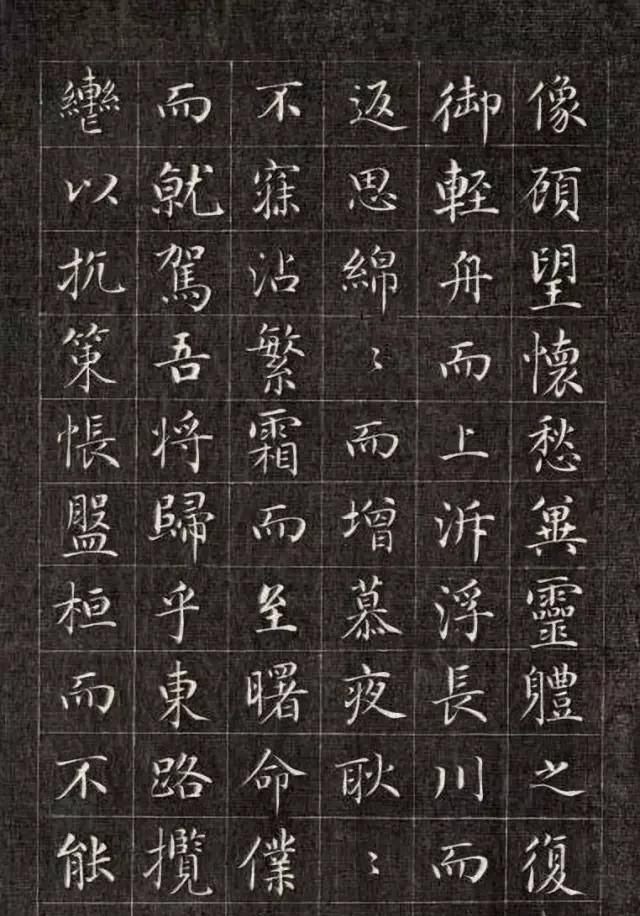 像頋望懷愁冀靈體之復
御輕舟而上泝浮長川而
返思綿〻而增慕夜耿〻
不寐沾繁霜而至曙命僕
而就駕吾将歸乎東路攬
轡以抗策悵盤桓而不能